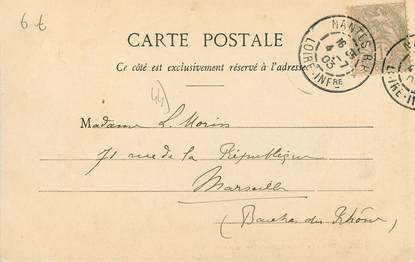 6 €
CARTE POSTALE
Ce côté est exclusivement réservé à l'adresse
NANTES R.P.
16 35
4 -7
03
LOIRE-INFRE
(44)
Madame L. Morin
71 rue de la République
Marseille
(Bouches du Rhône)